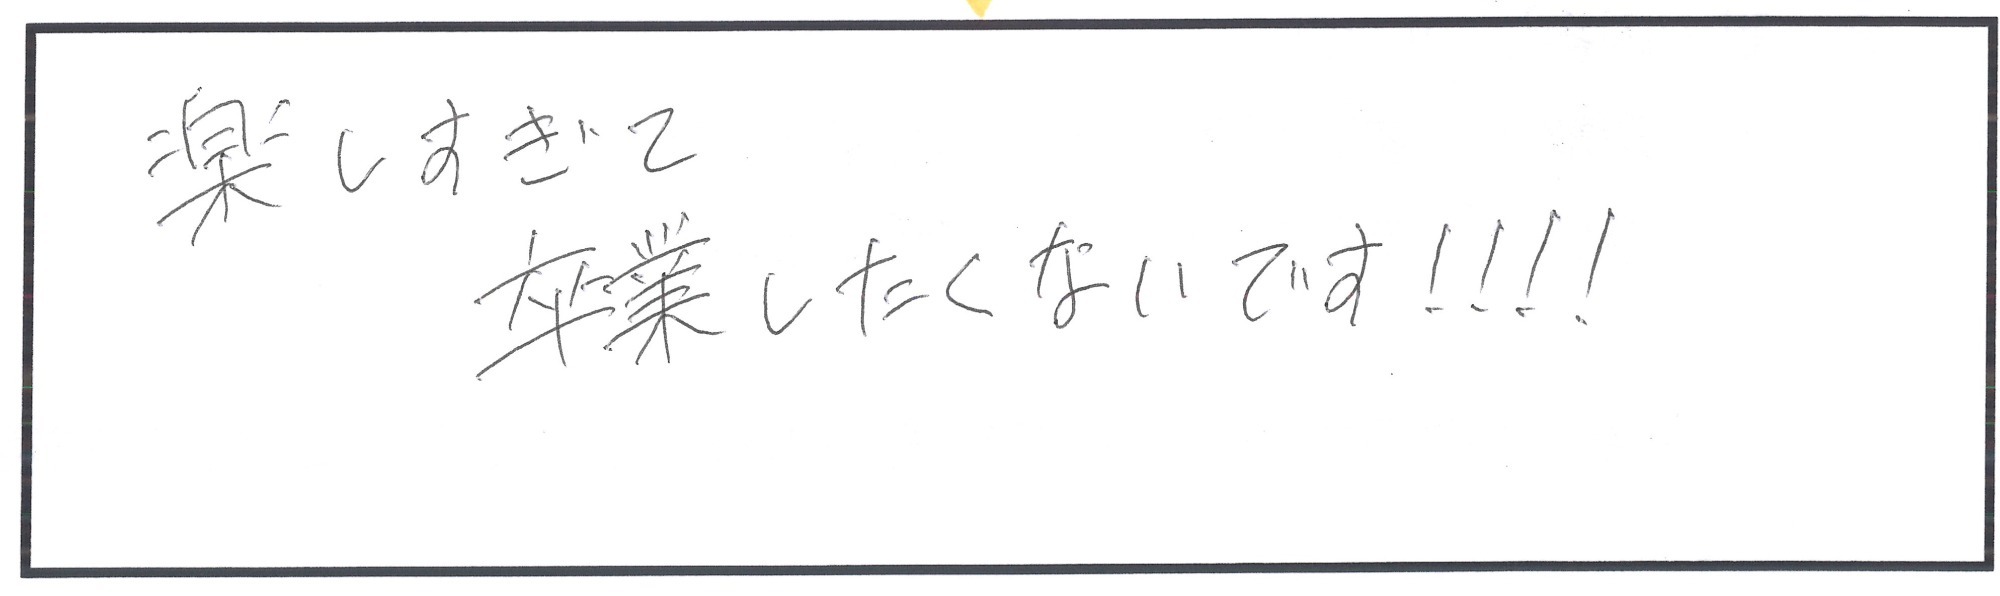 楽しすぎて
卒業したくないです!!!!